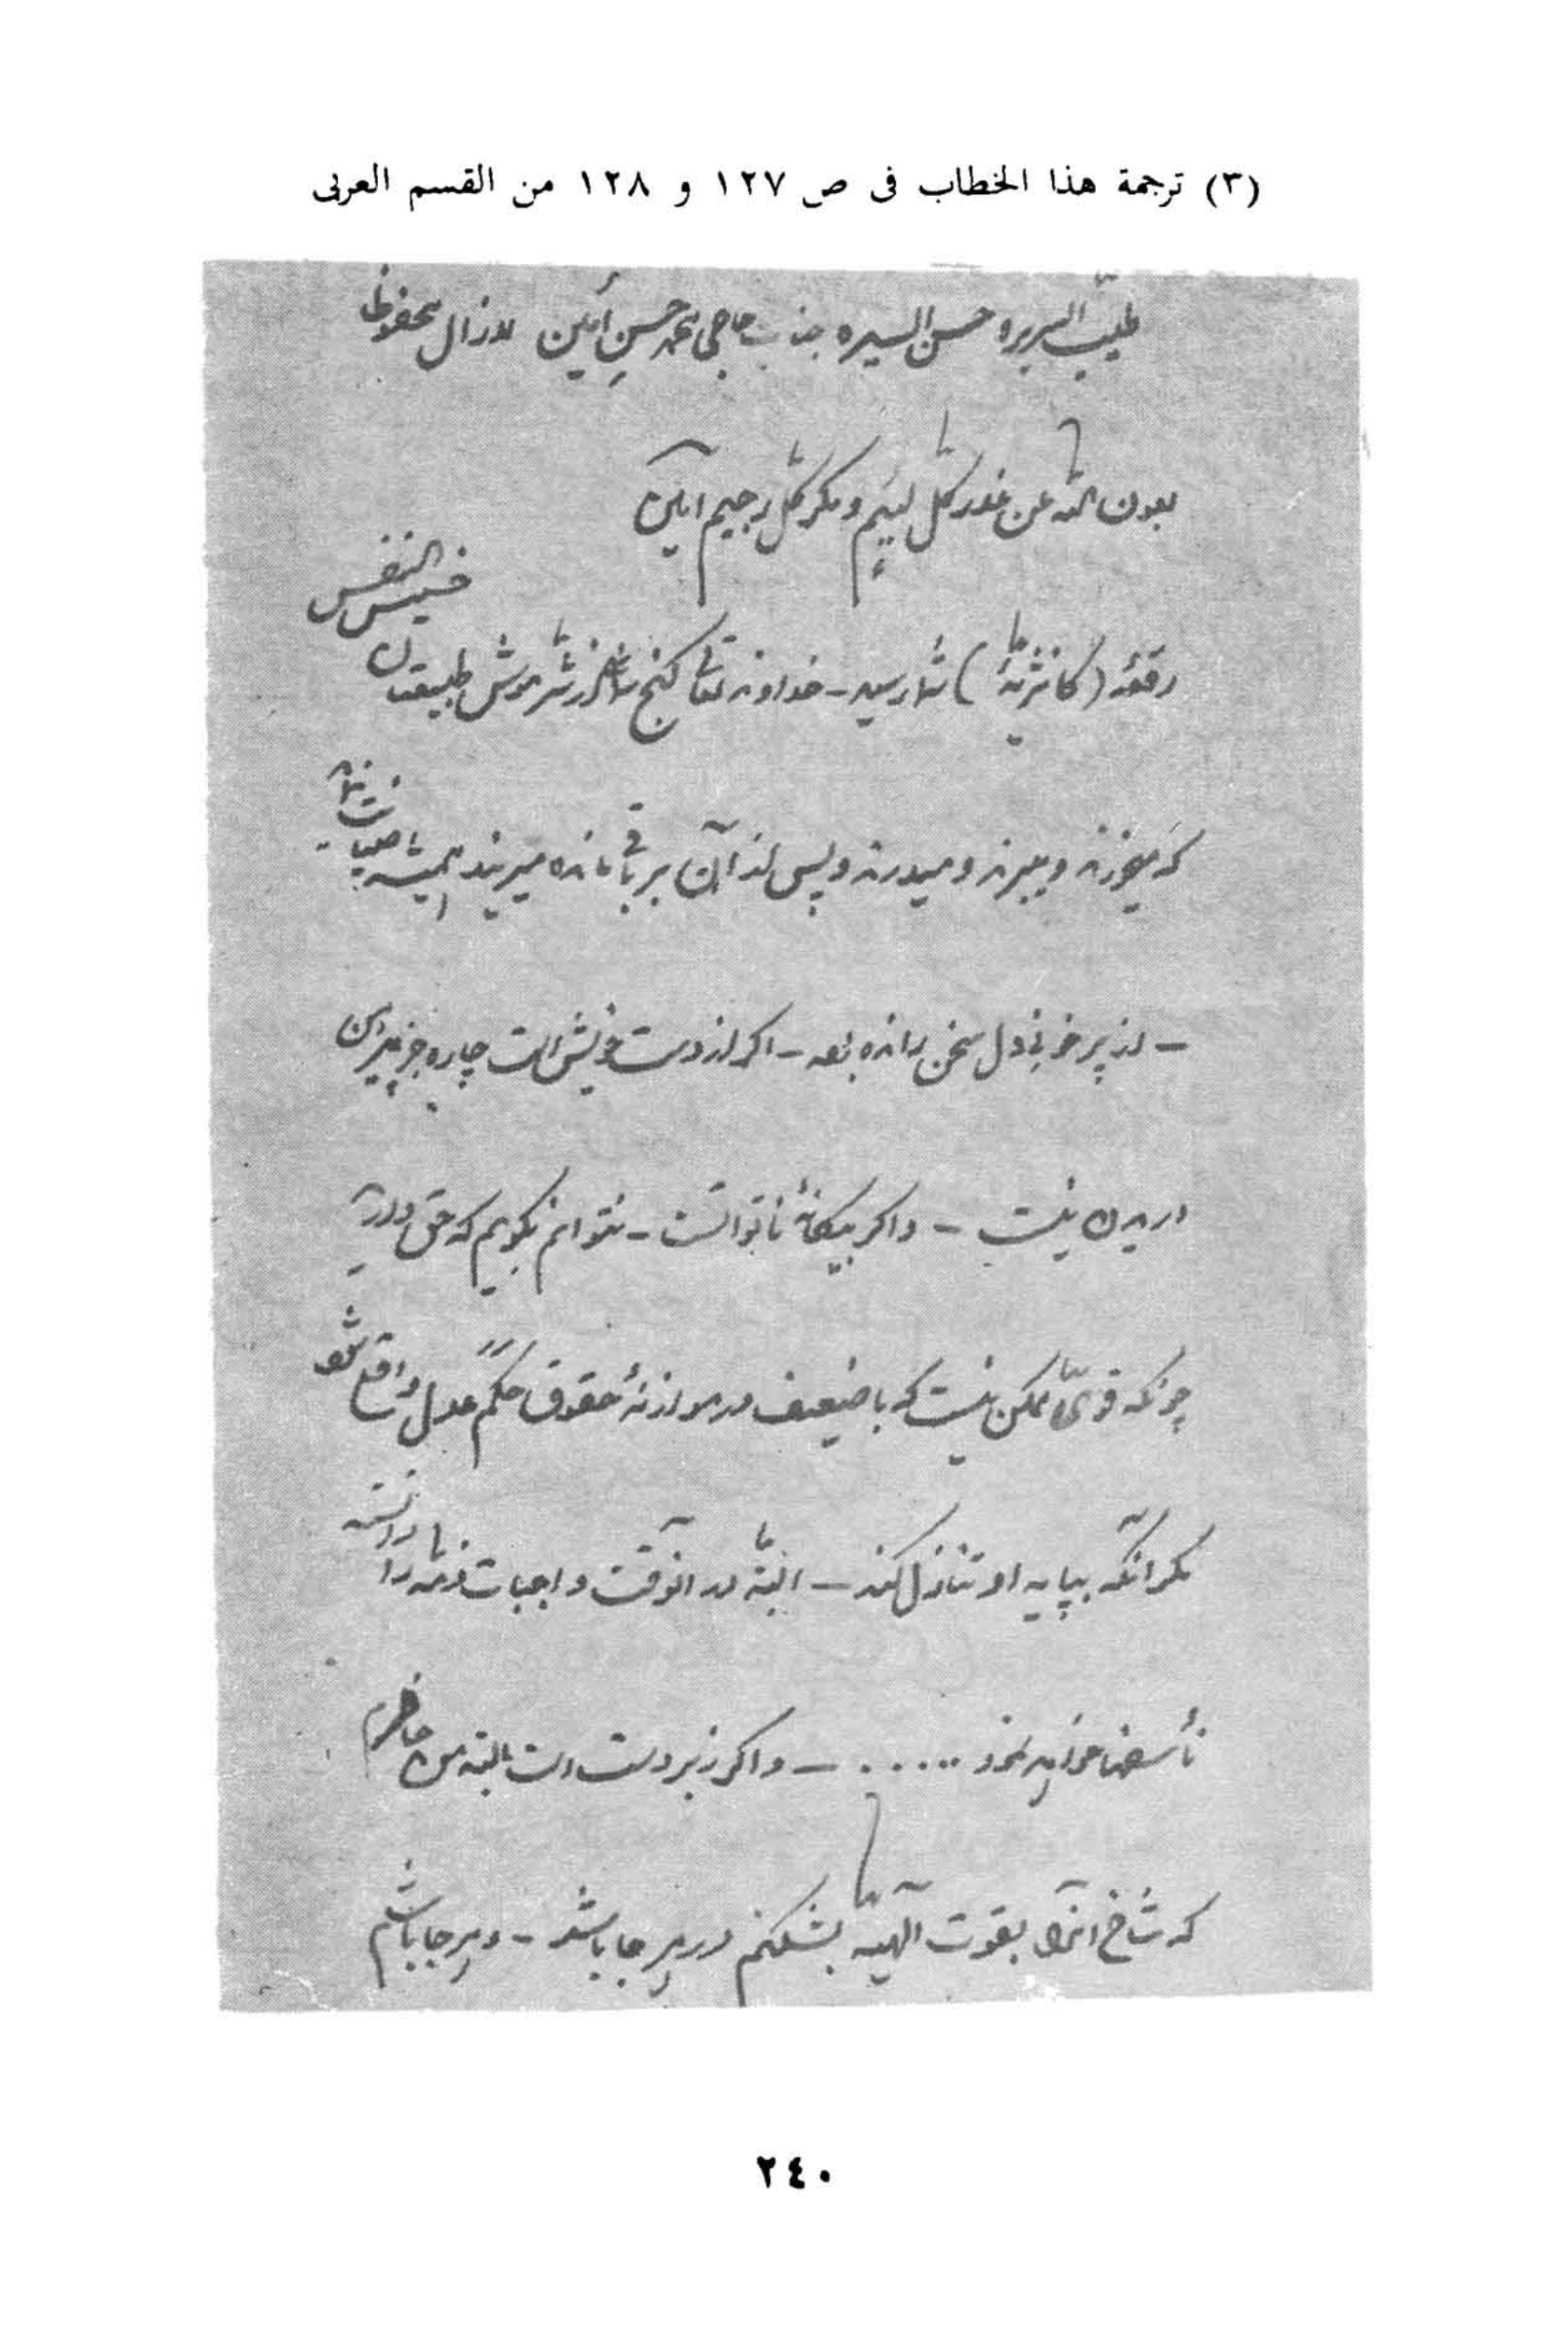 (٣) ترجمة هذا الخطاب فى ص ١٢٧ و ١٢٨ من القسم العربى
طیّب السریره حسن السیره جناب حاجی محمد حسن أمین لازال محفوظا
بعون الله عن غدر کلّ لئیم و مکر کلّ رجیم آمین
رقعۀ (کانزیۀ) شما رسید - خداوند تعالی گنج شما را از شرّ موش طبیعتان خسیس النفس
که میخورند و میبرند و میدرند و پس از آن بر باقی مانده میریند همیشه صیانت نماید
- از پر خونی دل سخن رانده بودید - اگر از دست خویش است چاره جز
نیست - و اگر بیگانۀ ناتوانست - نتوانم بگویم که حق دارید
چونکه قویّ ممکن نیست که با ضعیف در موازنۀ حقوق حکم عدل واقع شود
مگر آنکه بپایه او تنازل کند - البتّه در آنوقت واجبات ذمّه را دانسته
تأسف نخواهید خورد ..... - و اگر زبردست است البته من حاضرم
که شاخ آنرا بقوت آلهیّه بشکنم در هر جا باشد - و هر جا باشم
٢٤٠